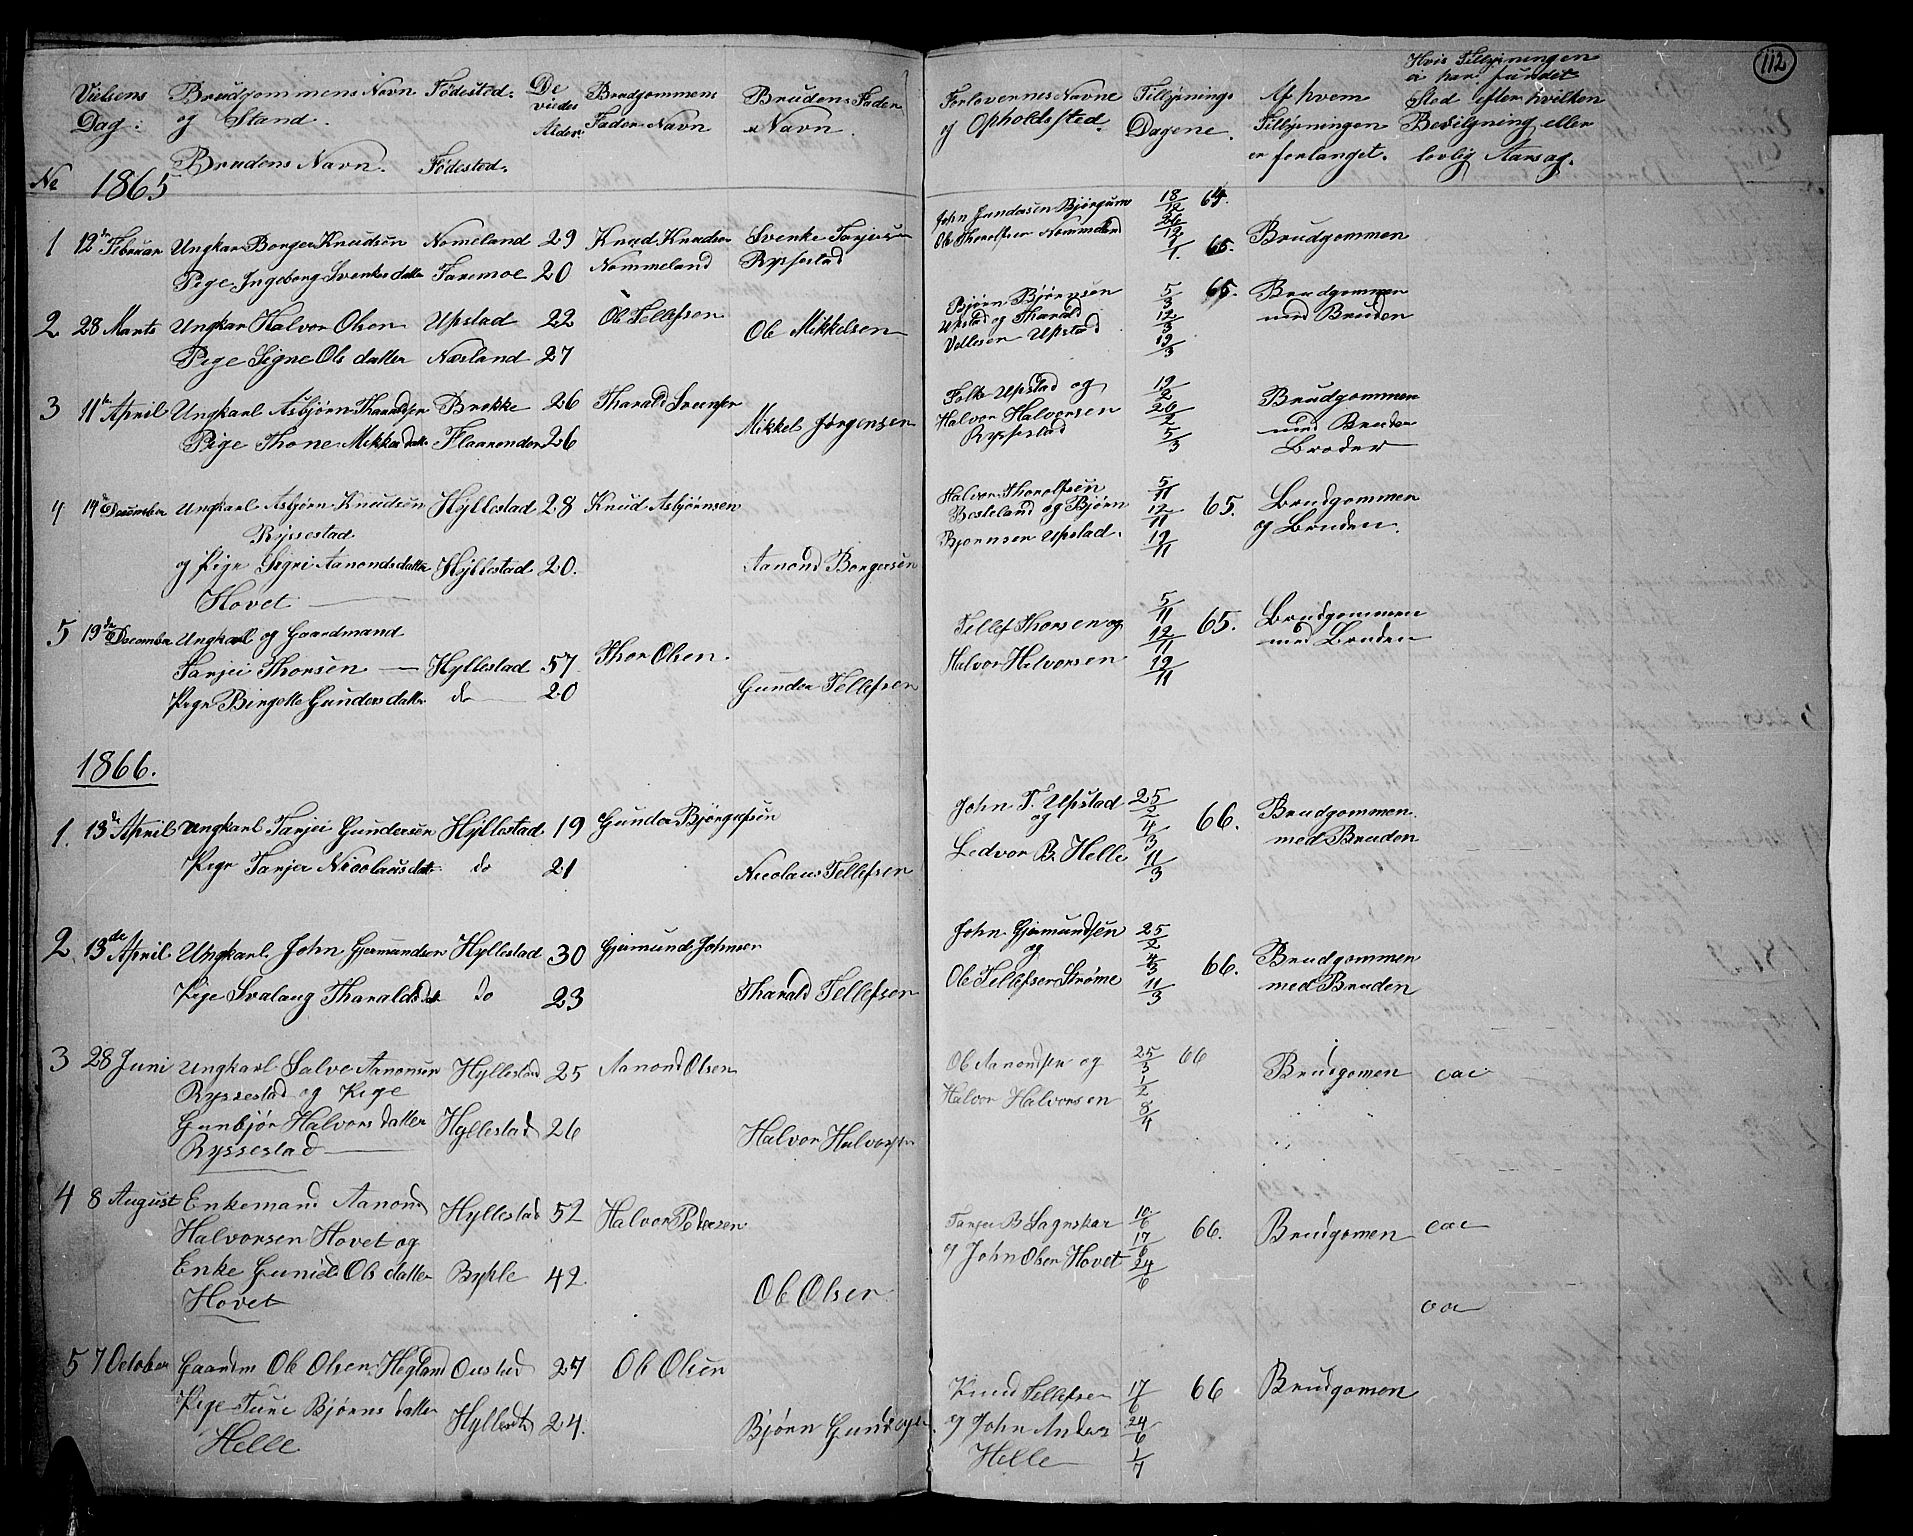 112
Vielsens Dag:
Brudgommens Navn og Stand.
Brudens Navn.
Fødested.
Fødested.
De viedes Alder
Brudgommens Fader Navn
Brudens Fader Navn.
Forlovernes Navne og Opholdssted.
Tillysnings Dagene.
Af hvem Tillysningen er forlanget.
Hvis Tillysningen ei har fundet Sted efter hvilken Bevilgning eller lovlig Aarsag.
No 1865
1 12te Februar Ungkar Borger Knudsen Nomeland 29 Knud Knudsen Svenke Tarjeisen
Pige Ingeborg Svenkesdatter Faremoe 20 Nommeland Ryssestad
John Gundersen Bjørgum 18/12 64.
Ole Thorolfsen Nommeland 26/12 1/1. 65. Brudgommen
2 28 Marts Ungkar Halvor Olsen Upstad 22 Ole Tellefsen Ole Mikkelsen
Pige Signe Ols datter Næsland 27
Bjørn Bjørnsen 5/3 65. Brudgommen
Upstad og Tharald 12/3 med Bruden
Vellesen Upstad 19/3
3 11te April Ungkarl Asbjørn Tharaldsen Brokke 26 Tharald Svensen Mikkel Jørgensen
Pige Thone Mikkelsdatter Flaarenden 26
Folke Upstad og 19/2 Brudgommen
Halvor Halvorsen 26/2 med Bruden
Ryssestad 5/3 Broder
4 14de December Ungkarl Asbjørn Knudsen Hyllestad 28 Knud Asbjørnsen
Ryssestad
og Pige Sigri Aanondsdatter Hyllestad 20. Aanond Borgersen
Hovet
Halvor Thorolfsen 5/11 Brudgommen
Besteland og Bjørn 12/11 65. og Bruden.
Bjørnsen Upstad. 19/11
5 19de December Ungkarl og Gaardmand
Tarjei Thorsen Hyllestad 57 Thor Olsen.
Pige Birgitte Gunders datter do 20 Gunder Tellefsen
Tellef Thorsen og 5/11 Brudgommen
Halvor Halvorsen 12/11 65. med Bruden
19/11
1866.
1. 13de April Ungkarl Tarjei Gundersen Hyllestad 19 Gunder Bjørgufsen
Pige Tarjer Nicolausdatter do 21 Nicolaus Tellefsen
John T. Upstad 25/2 Brudgommen
og 4/3 66. med Bruden
Ledvor B. Helle 11/3
2. 13de April Ungkarl John Gjermundsen Hyllestad 30 Gjermund Johnsen
Pige Svalaug Tharaldsdatter do 23 Tharald Tellefsen
John Gjermundsen 25/2
og 4/3 66. Brudgommen
Ole Tellefsen Strøme 11/3 med Bruden
3 28 Juni Ungkarl Salve Aanonsen Hyllestad 25 Aanond Olsen
Ryssestad og Pige
Gunbjør Halvors datter Hyllestad 26 Halvor Halvorsen
Ryssestad
Ole Aanondsen og 25/3 66 Brudgomen
Halvor Halvorsen 1/2 8/4
4 8 August Enkemand Aanond Hyllestad 52 Halvor Pedersen
Halvorsen Hovet og
Enke Gunild Ols datter Bykle 42 Ole Olsen
Hovet
Tarjei B Langeskar 10/6 66. Brudgomen
og John Olsen Hovet 17/6 24/6
5 7 October Gaardm Ole Olsen Hegland Oustad 27 Ole Olsen
Pige Turi Bjørns datter Hyllestd 24. Bjørn
Helle
Knud Tellefsen 17/6 66 Brudgomen
og John Anders 24/6
Helle 1/7